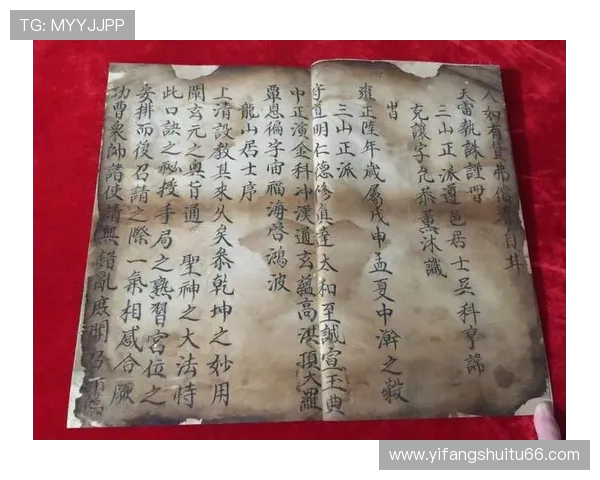 TG: MYYJJPP
人如有負帶償者自井
天雷執誅謹冊
三山正派遵邑居士吳科亨諦
克讓字允恭薰沐識
旹
雍正陸年歲屬戊申孟夏中澣之穀
三山正派
守道明仁德修真達太和至誠宣玉典
中正演金科冲漢通玄蘊高洪頂大羅
覃恩徧宇宙福海啓鴻波
龍山居士序
上清設教其來久矣叅乾坤之妙用
開玄元之奧旨通 聖神之大法恃
此口訣之祕授手局之熟習宮位之
安排而後召請之際一氣相感合厥
功曹衆帥諸使請無錯亂庶
www.yifangshuitu66.com